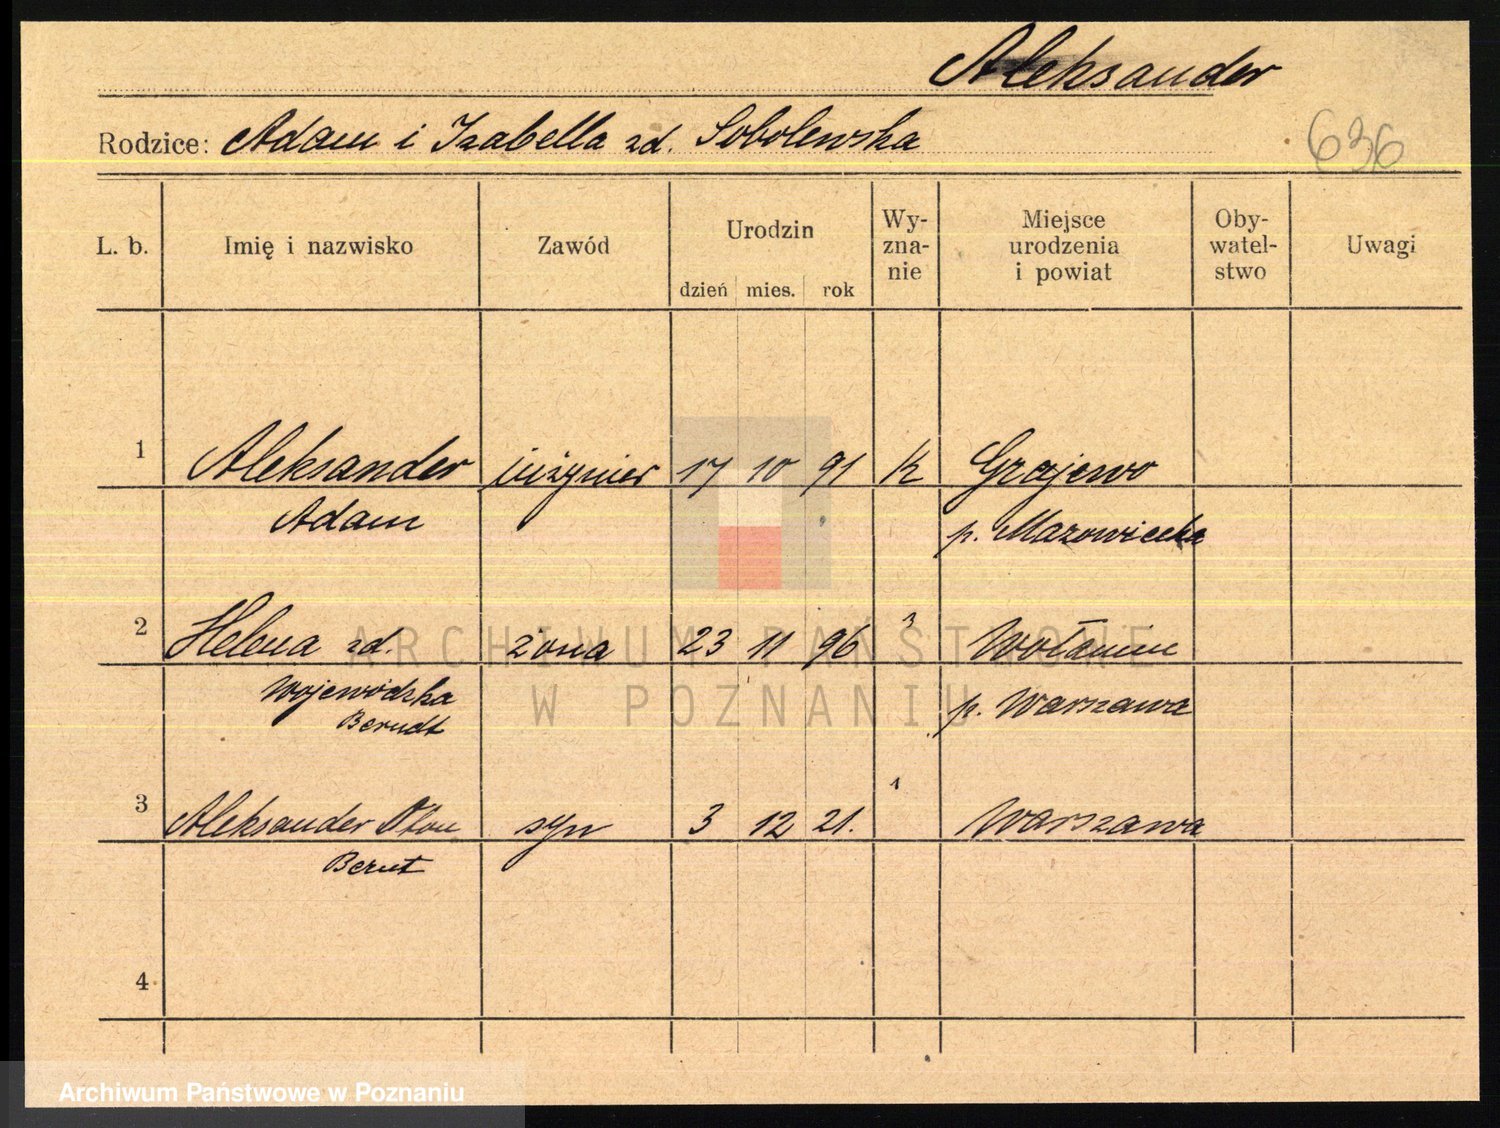 Aleksander
Rodzice: Adam i Izabella zd. Sobolewska
636
L. b. Imię i nazwisko Zawód Urodzin Wy- Miejsce Oby- Uwagi
zna- urodzenia watel-
dzień mies. rok nie i powiat stwo
1 Aleksander inżynier 17 10 91 K Grajewo
Adam p. Mazowiecka
2 Helena zd. żona 23 11 96 Wołomin
Wojewódzka p. Warszawa
Berudt
3 Aleksander syn 3 12 21. Warszawa
Berut
4
ARCHIWUM PAŃSTWOWE
W POZNANIU
Archiwum Państwowe w Poznaniu